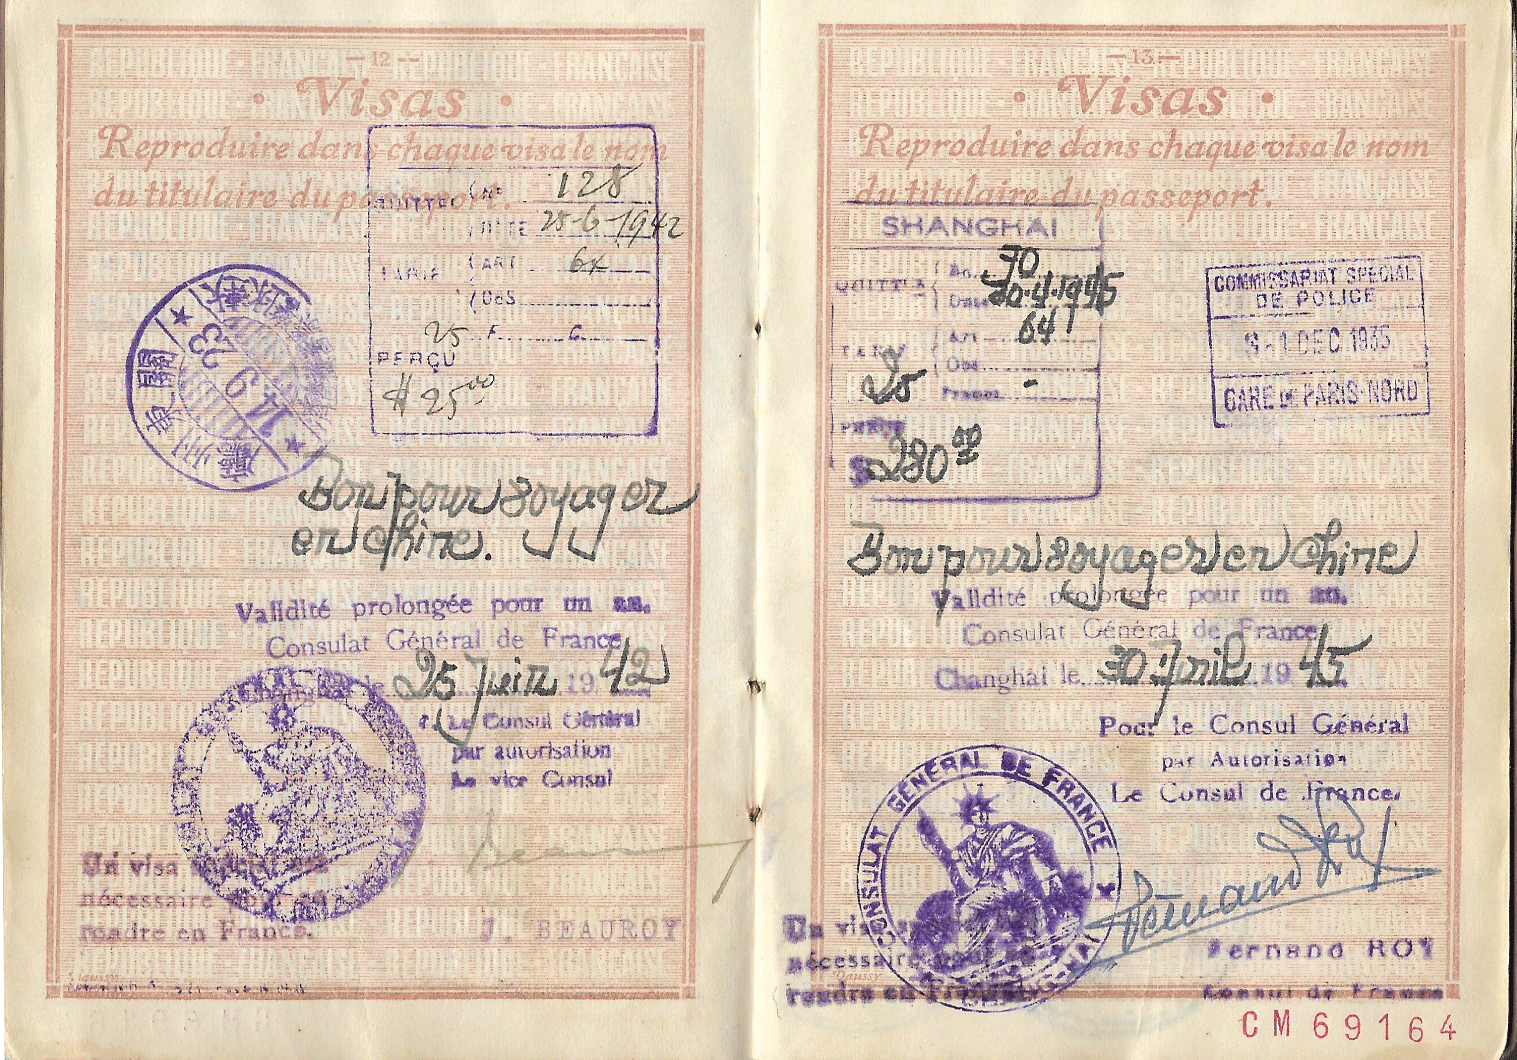 —12—
Visas
Reproduire dans chaque visa le nom
du titulaire du passeport.
QUITTCE
No 128
DATE 25-6-1942
TARIF
ART 64
OBS
25 F. C.
PERÇU
$ 25.00
14.9.23
Bon pour voyager
en Chine.
Validité prolongée pour un an.
Consulat Général de France
le 25 Juin 1942
P. Le Consul Général
par autorisation
Le vice Consul
Un visa spécial est
nécessaire pour se
rendre en France.
J. BEAUROY
—13—
Visas
Reproduire dans chaque visa le nom
du titulaire du passeport.
SHANGHAI
QUITTCE
No. 70
Date 30.4.1945
TARIF
Art. 64
Obs.
25 Francs -
PERÇU
$ 280.00
COMMISSARIAT SPÉCIAL
DE POLICE
S - 1 DEC 1935
GARE DE PARIS-NORD
Bon pour voyager en Chine
Validité prolongée pour un an.
Consulat Général de France
Changhaï le 30 Avril 1945
Pour le Consul Général
par Autorisation
Le Consul de France.
CONSULAT GÉNÉRAL DE FRANCE
Fernand Roy
Un visa spécial est
nécessaire pour se
rendre en France.
Fernand ROY
Consul de France
CM69164